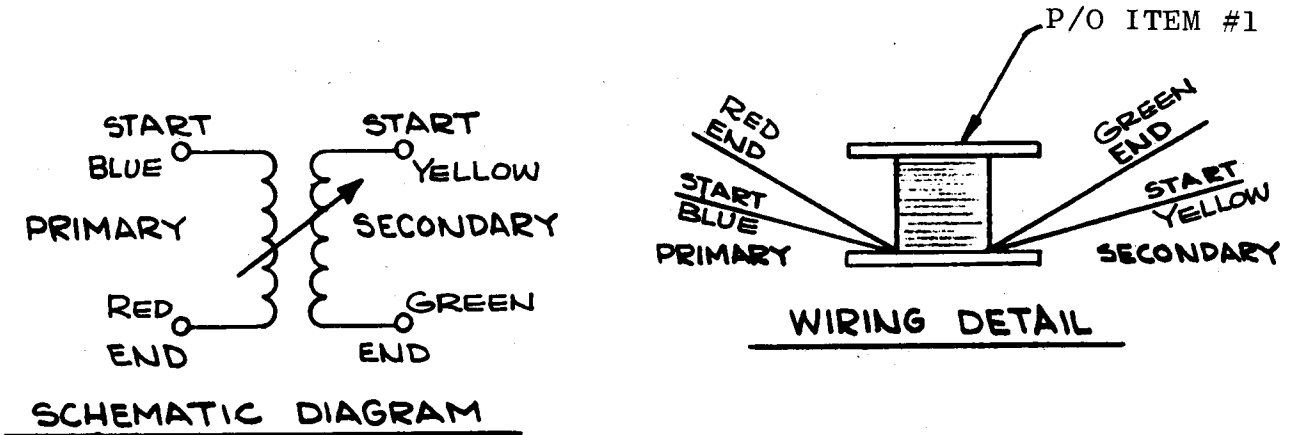 P/O ITEM #1
START
BLUE
PRIMARY
RED
END
START
YELLOW
SECONDARY
GREEN
END
SCHEMATIC DIAGRAM
RED
END
START
BLUE
PRIMARY
GREEN
END
START
YELLOW
SECONDARY
WIRING DETAIL